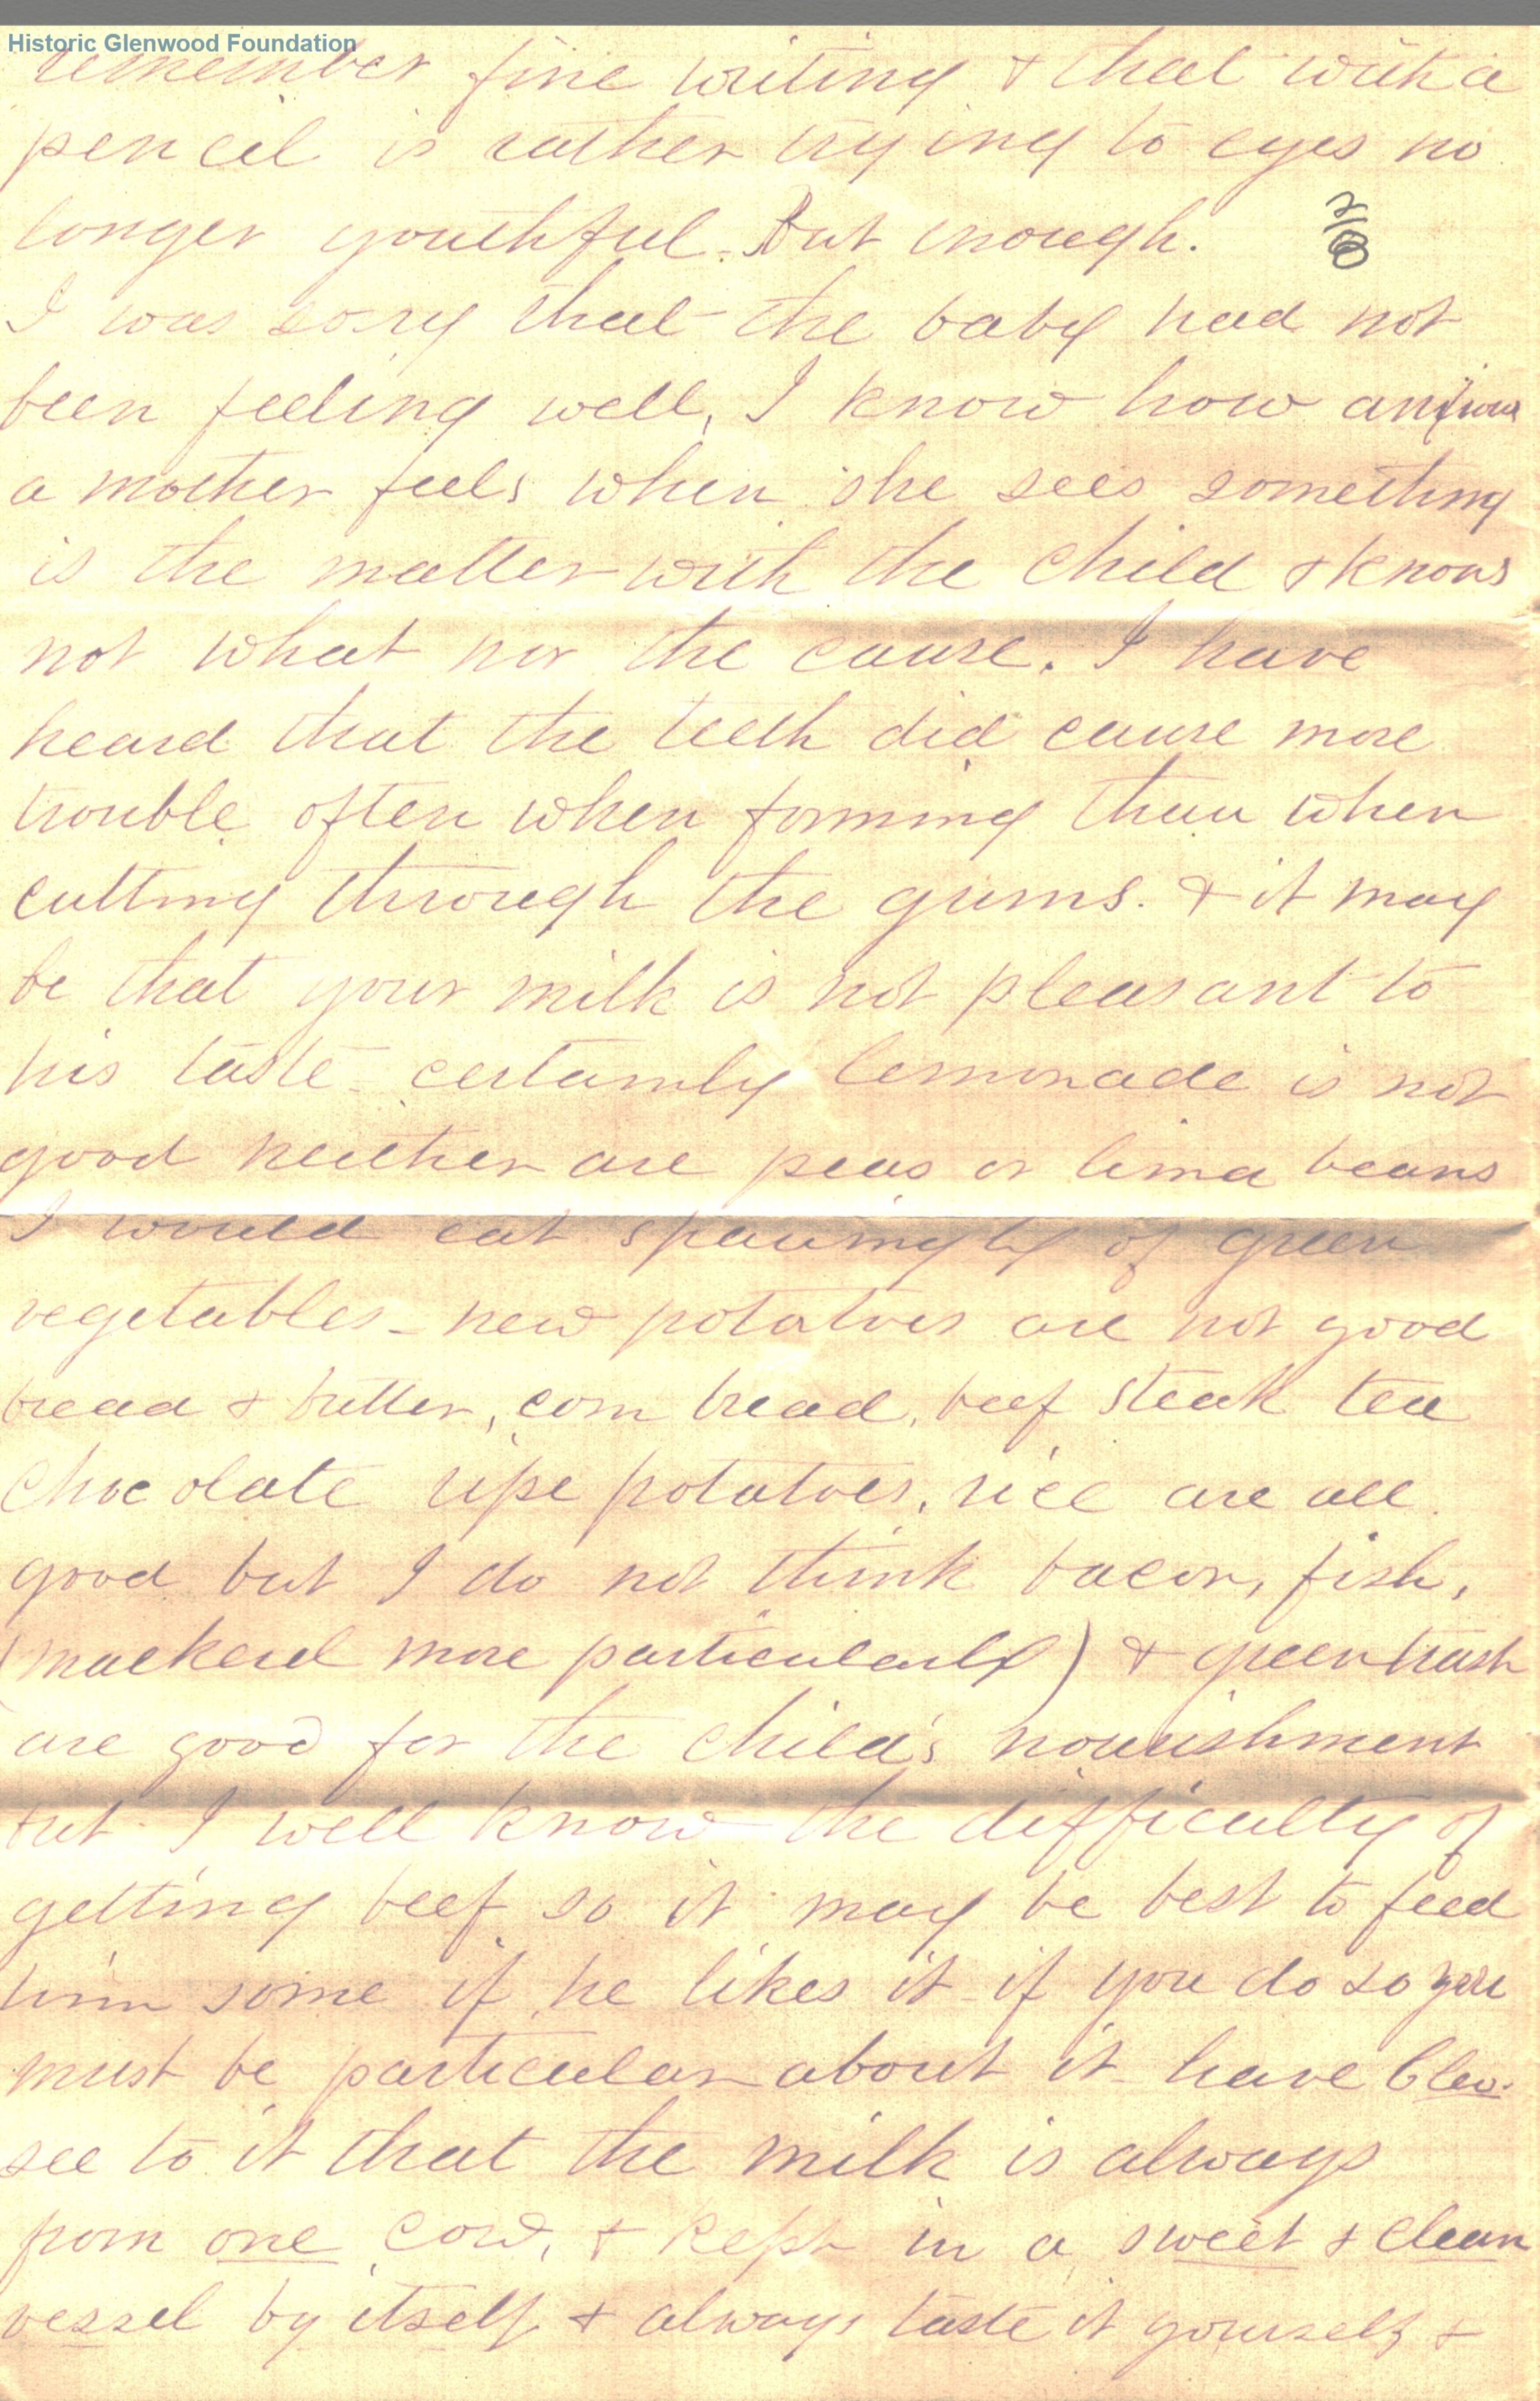 Historic Glenwood Foundation
remember fine writing & that with a
pencil is rather trying to eyes no
longer youthful. But enough.
I was sorry that the baby had not
been feeling well, I know how anxious
a mother feels when she sees something
is the matter with the child & knows
not what nor the cause. I have
heard that the teeth did cause more
trouble often when forming than when
cutting through the gums. & it may
be that your milk is not pleasant to
his taste - certainly lemonade is not
good neither are peas or lima beans
I would eat sparingly of green
vegetables - new potatoes are not good
bread & butter, corn bread, beef steak tea
chocolate ripe potatoes, rice are all
good but I do not think bacon, fish,
(mackerel more particularly) & green trash
are good for the child's nourishment
but I well know the difficulty of
getting beef so it may be best to feed
him some if he likes it - if you do so you
must be particular about it - have Cleo.
see to it that the milk is always
from one cow, & kept in a sweet & clean
vessel by itself & always taste it yourself &